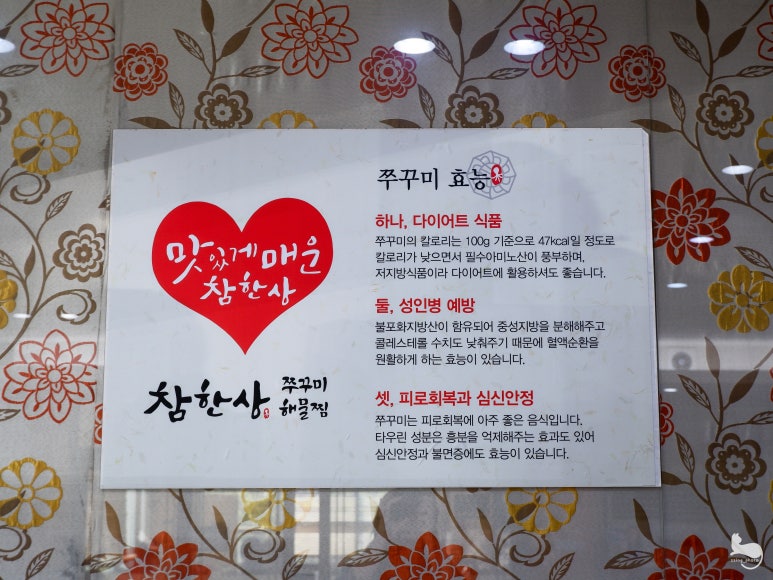 맛있게매운
참한상
참한상
쭈꾸미
해물찜
쭈꾸미 효능
하나, 다이어트 식품
쭈꾸미의 칼로리는 100g 기준으로 47kcal일 정도로
칼로리가 낮으면서 필수아미노산이 풍부하며,
저지방식품이라 다이어트에 활용하셔도 좋습니다.
둘, 성인병 예방
불포화지방산이 함유되어 중성지방을 분해해주고
콜레스테롤 수치도 낮춰주기 때문에 혈액순환을
원활하게 하는 효능이 있습니다.
셋, 피로회복과 심신안정
쭈꾸미는 피로회복에 아주 좋은 음식입니다.
타우린 성분은 흥분을 억제해주는 효과도 있어
심신안정과 불면증에도 효능이 있습니다.